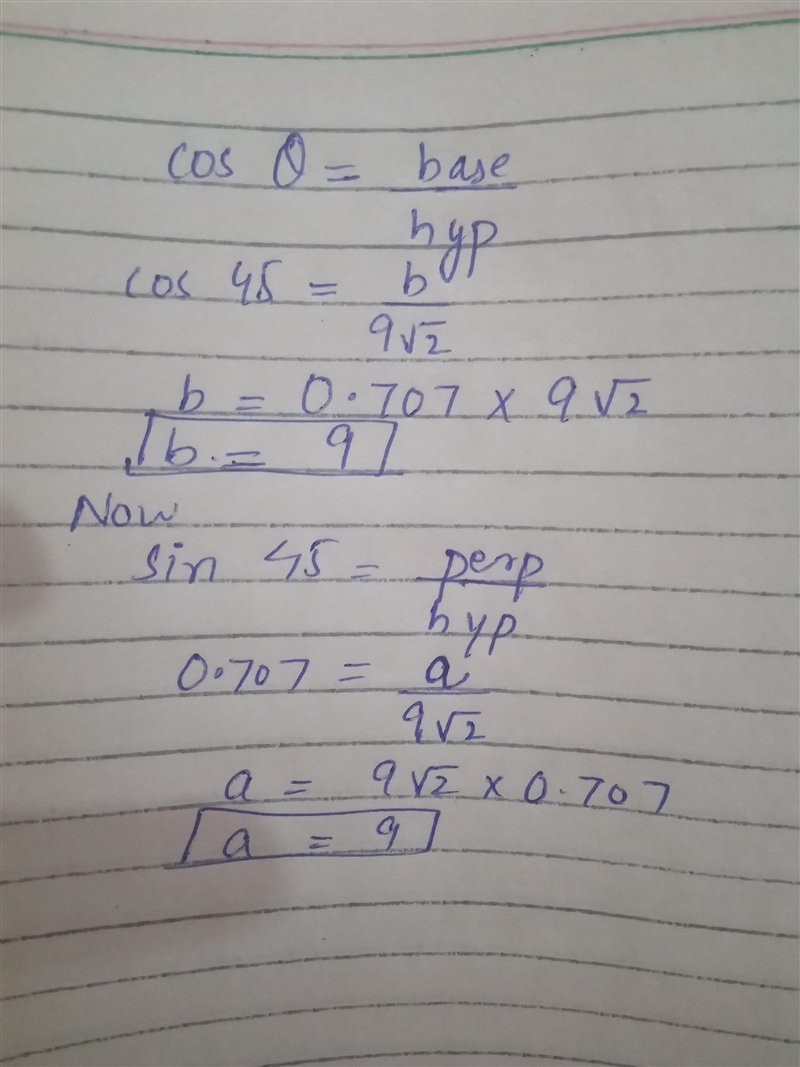 cos θ = base
hyp
cos 45 = b
9√2
b = 0.707 x 9√2
b. = 9
Now
sin 45 = perp
hyp
0.707 = a
9√2
a = 9√2 x 0.707
a = 9